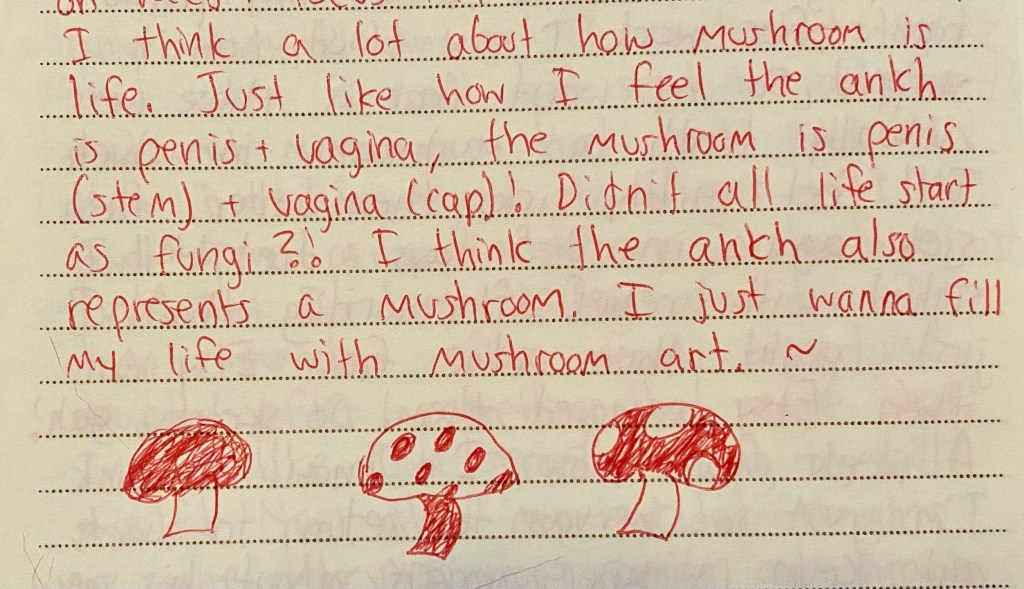 I think a lot about how mushroom is
life. Just like how I feel the ankh
is penis + vagina, the mushroom is penis
(stem) + vagina (cap)! Didn't all life start
as fungi?! I think the ankh also
represents a mushroom. I just wanna fill
my life with mushroom art. ~